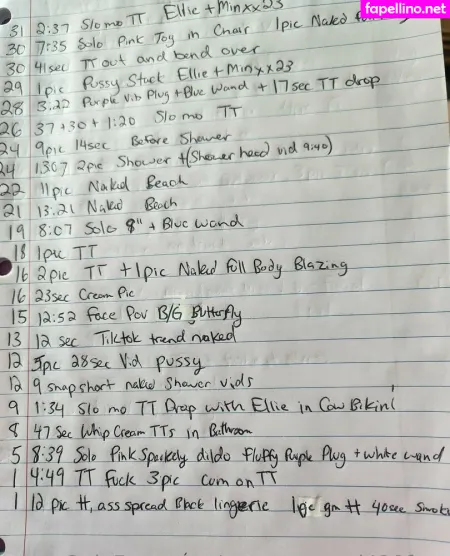 fapellino.net
31 2:37 Slo mo TT Ellie + Minxx23
30 7:35 Solo Pink Toy in Chair 1pic Naked
30 41sec TT out and bend over
29 1pic Pussy Stack Ellie + Minxx23
28 3:20 Purple Vib Plug + Blue Wand + 17sec TT drop
26 37 + 30 + 1:20 Slo mo TT
24 9pic 14sec Before Shower
24 1:307 2pic Shower + (Shower head vid 9:40)
22 11pic Naked Beach
21 13:21 Naked Beach
19 8:07 Solo 8" + Blue wand
18 1pic TT
16 2pic TT + 1pic Naked Full Body Blazing
16 23sec Cream Pic
15 12:52 Face Pov B/G Butterfly
13 12 sec Tiktok trend naked
12 5pic 28sec Vid pussy
12 9 snap short naked Shower vids
9 1:34 Slo mo TT Drop with Ellie in Cow Bikini
8 47 Sec Whip Cream TTs in Bathroom
5 8:39 Solo Pink Sparkely dildo Fluffy Purple Plug + white wand
1 4:49 TT Fuck 3pic cum on TT
1 12 pic #, ass spread Black lingerie 40sec